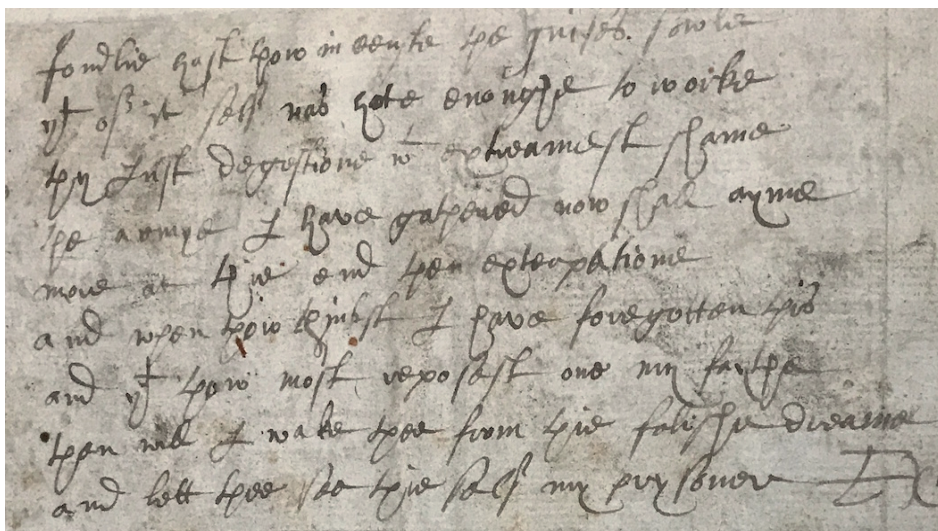 fondlie hast thow in censte the guises sowle
yt of it self was hote enoughe to worke
thy Iust degestione wt extreamest shame
the armye I have gathered now shall ayme
more at thie end then exterpatione
and when thow thinkst I have foregotten this
and yt thow most reposest one my faythe
then will I wake thee from thie folishe dreame
and lett thee see thie self my prysoner